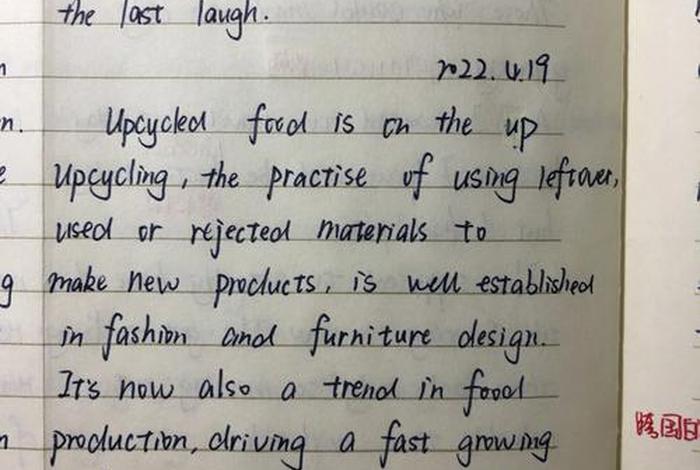 the last laugh.
2022.4.19
Upcycled food is on the up
Upcycling, the practise of using leftover,
used or rejected materials to
make new products, is well established
in fashion and furniture design.
It's now also a trend in food
production, driving a fast growing
跨国